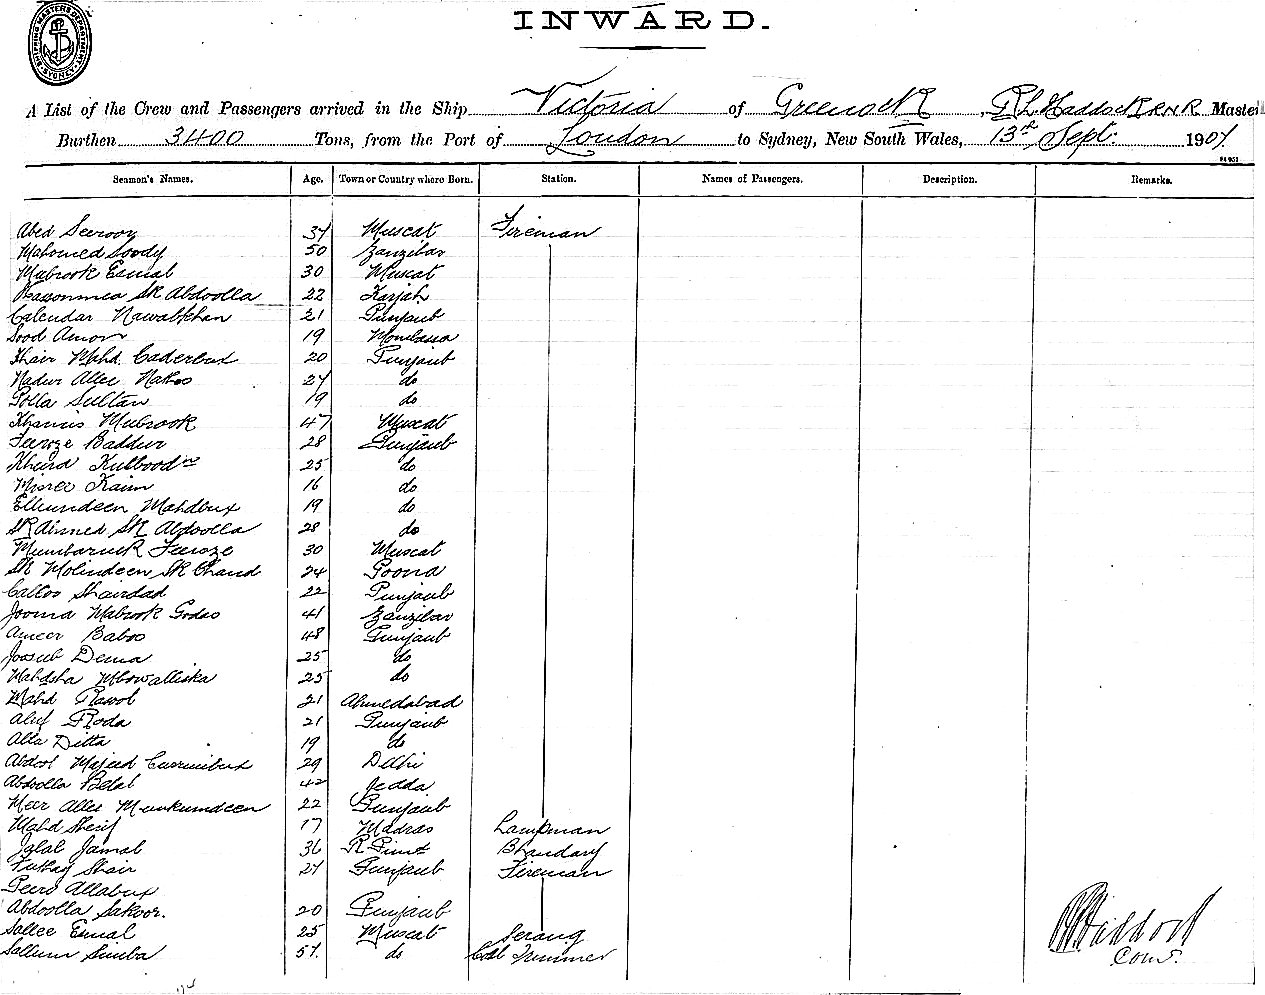 SHIPPING MASTERS DEPARTMENT SYDNEY
INWARD.
A List of the Crew and Passengers arrived in the Ship Victoria of Greenock, Master
Burthen 3400 Tons, from the Port of London to Sydney, New South Wales, 13th Sept. 1901
Seamen's Names. Age. Town or Country where Born. Station. Names of Passengers. Description. Remarks.
Abed 34 Muscat Fireman
Mahomed Soody 50 Zanzibar
Mubrook Esmal 30 Muscat
SK Abdoolla 22
Calendar Nawabkhan 21 Punjaub
Sood 19 Mombassa
Khair Mahd. Caderbux 20 Punjaub
Nadur Allee 24 do
Polla Sultan 19 do
Khamis Mubrook 47 Muscat
Feroze Baddur 28 Punjaub
25 do
Misree Kaim 16 do
Ellumdeen Mahdbux 19 do
SK Ahmed SK Abdoolla 28 do
Mumbaruck Feroze 30 Muscat
SK Mohideen SK Chand 24 Poona
Calloo Shairdad 22 Punjaub
Jooma Mabrook 41 Zanzibar
Ameer Baboo 48 Punjaub
Joosub 25 do
25 do
Mahd Rasool 21 Ahmedabad
Alif Roda 21 Punjaub
Alla Ditta 19 do
Abdool Majeed Currimbux 29 Delhi
Abdoolla Belal 42 Jedda
Meer Allee 22 Punjaub
Mahd Sherif 17 Madras Lampman
Jalal Jamal 36 Bhandary
Shair 24 Punjaub Fireman
Peero Allabux
Abdoolla Sakoor. 20 Punjaub
Sallee Esmal 25 Muscat Serang
Sallum Simba 51 do Coal Trimmer
Comr.